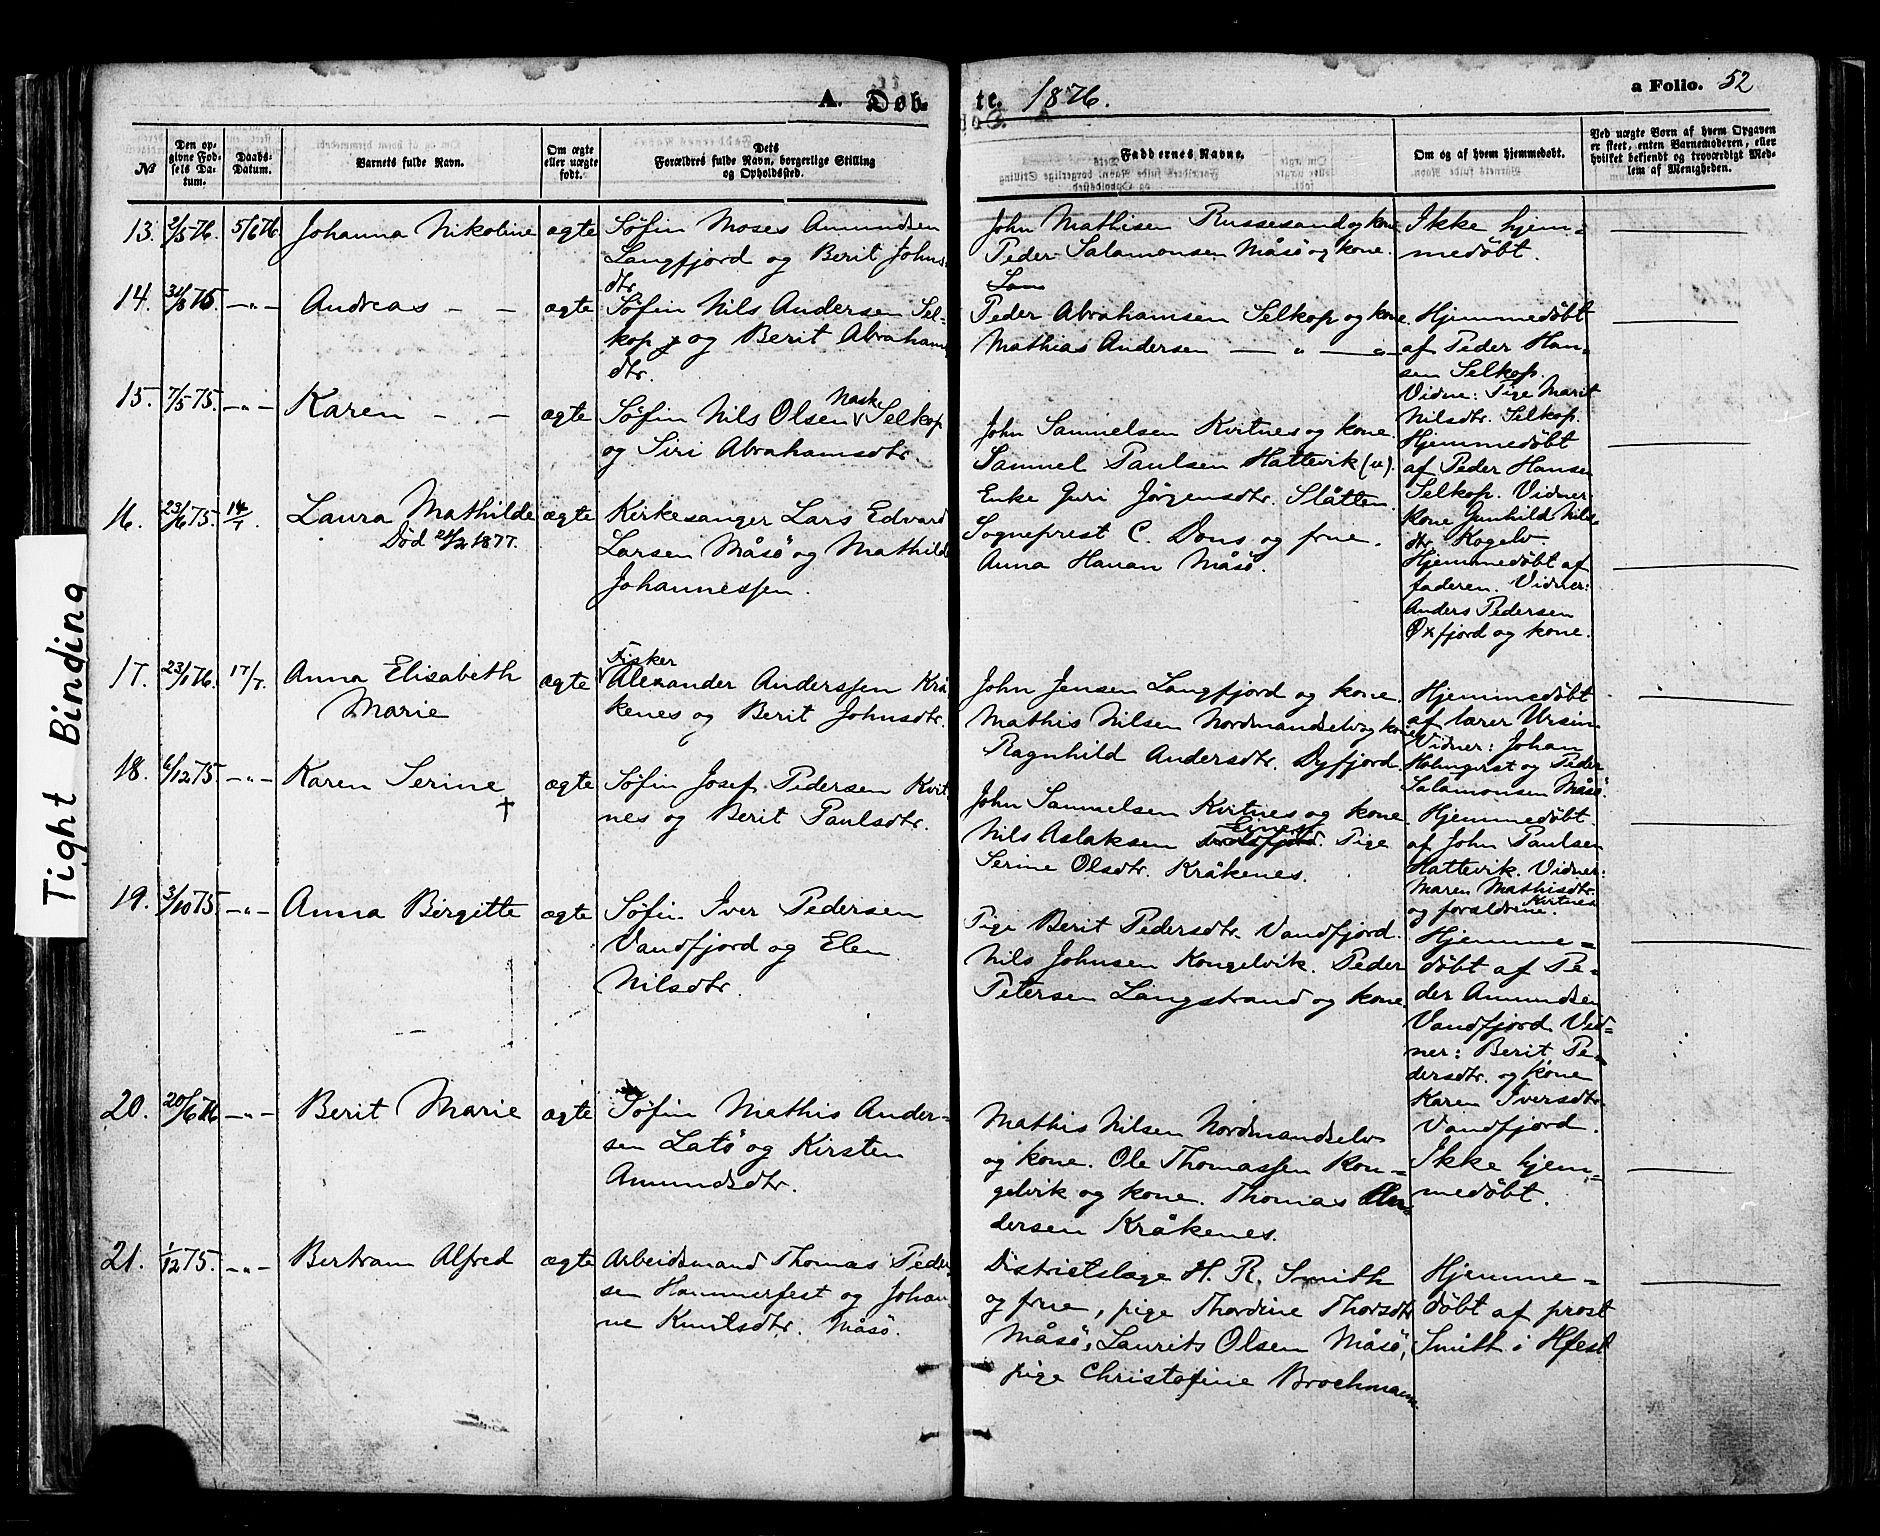 A. Døbte. 1876.
a Folio. 52
Tight Binding
№
Den opgivne Fødsels Datum.
Daabs-Datum.
Barnets fulde Navn.
Om ægte eller uægte født.
Dets Forældres fulde Navn, borgerlige Stilling og Opholdssted.
Faddernes Navne.
Om og af hvem hjemmedøbt.
Ved uægte Børn af hvem Opgaven er skeet, enten Barnemoderen, eller hvilket bekjendt og troværdigt Medlem af Menigheden.
13. 2/5 76. 5/6 76. Johanna Nikoline ægte
Søfin Moses Amundsen
Langfjord og Berit Johns-
dtr.
John Mathisen Russesand og kone
Peder Salamonsen Måsö og kone.
Ikke hjem-
medøbt.
14. 31/3 75. —"— Andreas — — ægte
Søfin Nils Andersen Sel-
kop og Berit Abrahams
dtr.
Peder Abrahamsen Selkop og kone.
Mathias Andersen — " — " —
Hjemmedøbt
af Peder Han-
sen Selkop.
Vidne: Pige Marit
Nilsdtr. Selkop.
15. 7/5 75. —"— Karen — — ægte
Søfin Nils Olsen Nask Selkop
og Siri Abrahamsdtr.
John Samuelsen Kvitnes og kone.
Samuel Paulsen Hattevik (u).
Enke Guri Jørgensdtr. Slåtten.
Hjemmedøbt
af Peder Hansen
Selkop. Vidner
kone Gunhild Nils-
dtr. Kogelv.
16. 23/6 75. 14/7. Laura Mathilde ægte
Død 24/2 1877.
Kirkesanger Lars Edvard
Larsen Måsö og Mathilde
Johannessen.
Sogneprest C. Dons og frue.
Anna Hanan Måsö.
Hjemmedøbt af
faderen. Vidner:
Anders Pedersen
Oxfjord og kone.
17. 23/1 76. 17/7. Anna Elisabeth
Marie ægte
Fisker
Alexander Anderssen Krå-
kenes og Berit Johnsdtr.
John Jensen Langfjord og kone.
Mathis Nilsen Nordmandselv og kone
Ragnhild Andersdtr. Dyfjord.
Hjemmedøbt
af lærer Ursin
Vidner: Johan
Holmgrest og Peder
Salamonsen Måsö.
18. 6/12 75. —"— Karen Serine † ægte
Søfin Josef Pedersen Kvit-
nes og Berit Paulsdtr.
John Samuelsen Kvitnes og kone.
Nils Aslaksen Pige
Serine Olsdtr. Kråkenes.
Hjemmedøbt
af John Paulsen
Hattevik. Vidner:
Maren Mathisdtr.
Kvitnes
og forældrene.
19. 3/10 75. —"— Anna Birgitte ægte
Søfin Iver Pedersen
Vandfjord og Elen
Nilsdtr.
Pige Berit Pedersdtr. Vandfjord.
Nils Johnsen Kongelvik. Peder
Petersen Langstrand og kone.
Hjemme-
døbt af Pe-
der Amundsen
Vandfjord. Vid-
ner: Berit Pe-
dersdtr. og kone
Karen Iversdtr.
Vandfjord.
20. 20/6 76 —"— Berit Marie ægte
Søfin Mathis Ander-
sen Latö og Kirsten
Amundsdtr.
Mathis Nilsen Nordmandselv
og kone. Ole Thomassen Kon-
gelvik og kone. Thomas An-
dersen Kråkenes.
Ikke hjem-
medøbt.
21. 1/12 75. —"— Bertram Alfred ægte
Arbeidsmand Thomas Peder-
sen Hammerfest og Johan-
ne Knutsdtr. Måsö.
Districtslæge H. R. Smith
og frue, pige Thordine Thorsdtr
Måsö, Laurits Olsen Måsö,
pige Christofine Brochmann.
Hjemme-
døbt af prost
Smitt i Hfest